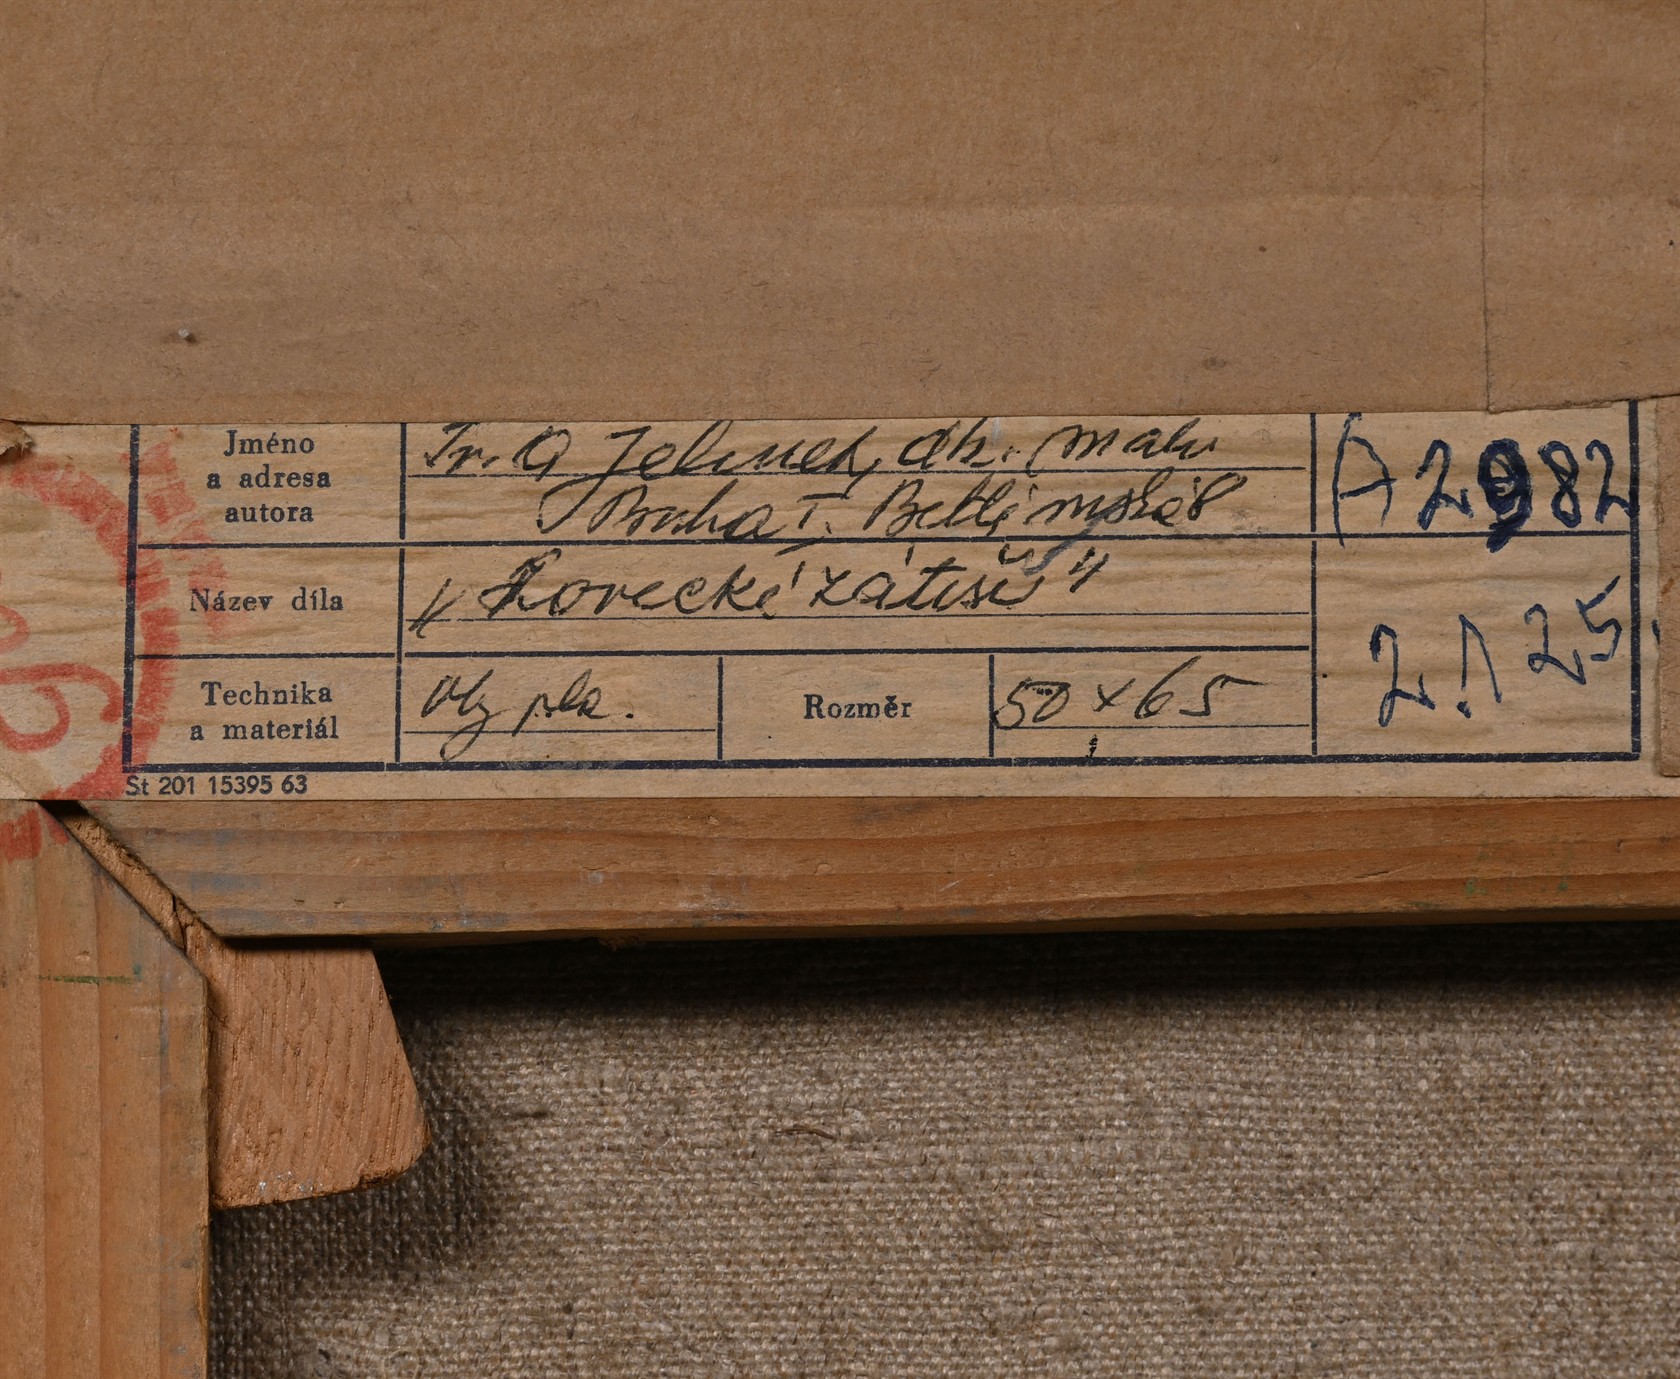 Jméno
a adresa
autora
Fr. A Jelinek, ak. malíř
Praha I. Betlémská 8
A 2982
Název díla
"Lovecké zátiší"
2.1 25
Technika
a materiál
olej pla.
Rozměr
50 x 65
St 201 15395 63